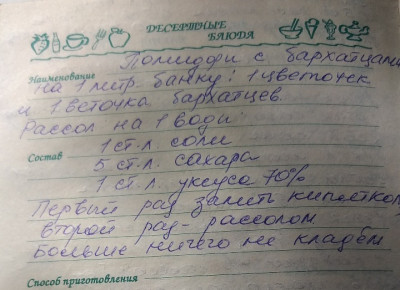 ДЕСЕРТНЫЕ
БЛЮДА
Помидоры с бархатцами
Наименование
на 1 литр. банку: 1 цветочек
и 1 веточка бархатцев.
Рассол на 1 воды:
1 ст.л. соли
Состав
5 ст.л. сахара
1 ст.л. уксуса 70%
Первый раз залить кипятком,
второй раз - рассолом
Больше ничего не кладём
Способ приготовления